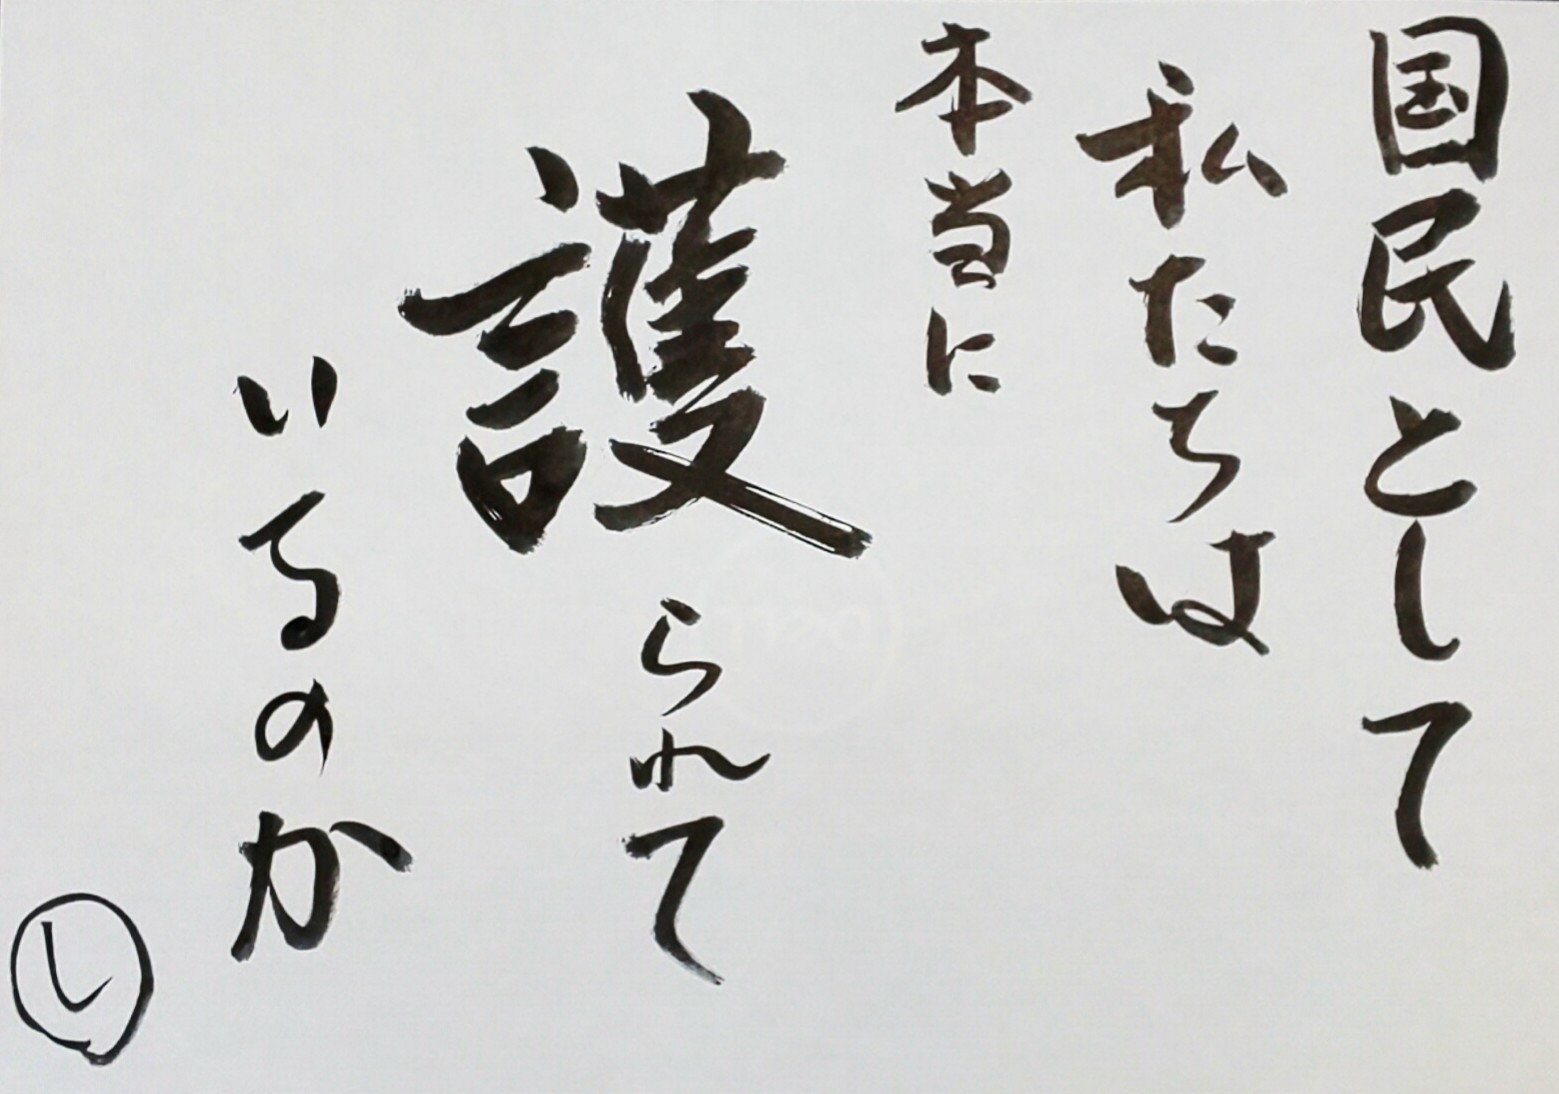 国民として
私たちは
本当に
護られて
いるのか
し